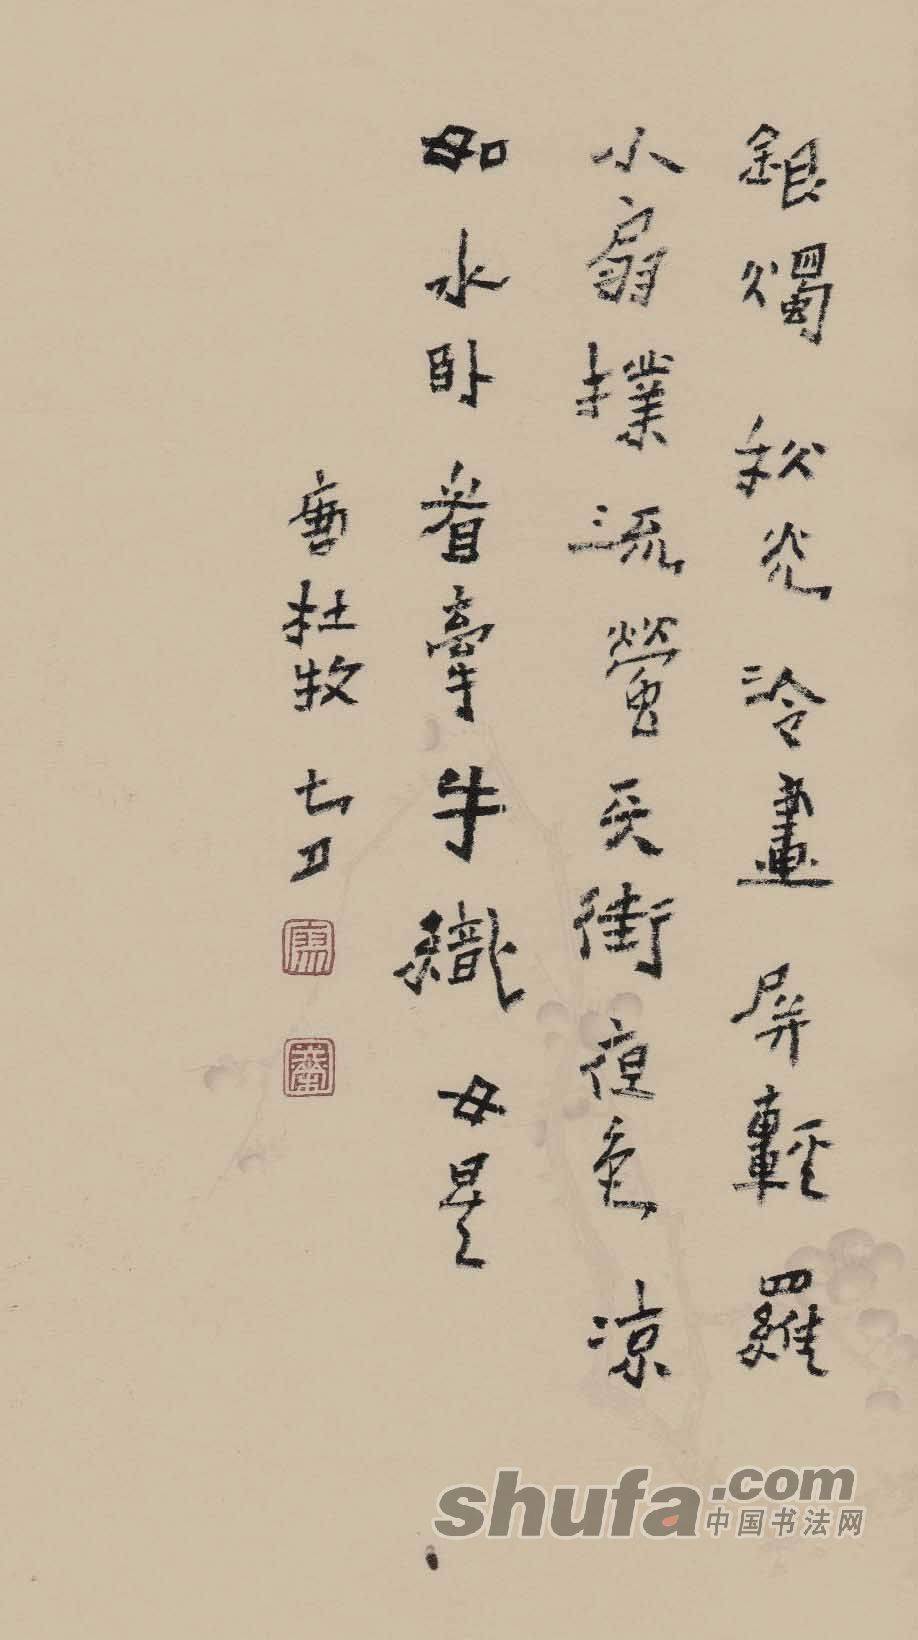 銀燭秋光冷畫屏輕羅
小扇撲流螢天街夜色涼
如水卧看牽牛織女星
唐杜牧七刀
shufa.com
中国书法网